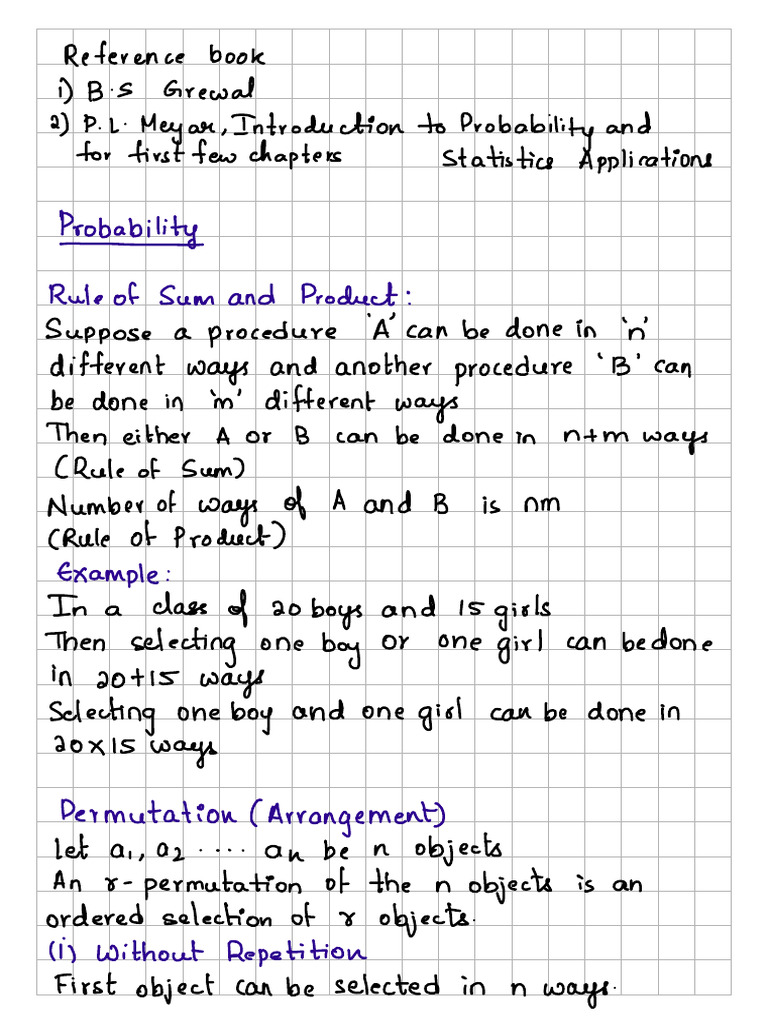 Reference book
i) B.S Grewal
2) P.L. Meyar, Introduction to Probability and
for first few chapters Statistics Applications
Probability
Rule of Sum and Product:
Suppose a procedure 'A' can be done in 'n'
different ways and another procedure 'B' can
be done in 'm' different ways
Then either A or B can be done in n+m ways
(Rule of Sum)
Number of ways of A and B is nm
(Rule of Product)
Example:
In a class of 20 boys and 15 girls
Then selecting one boy or one girl can be done
in 20+15 ways
Selecting one boy and one girl can be done in
20×15 ways
Permutation (Arrangement)
let a₁, a₂ ..... an be n objects
An r-permutation of the n objects is an
ordered selection of r objects.
(i) Without Repetition
First object can be selected in n ways.